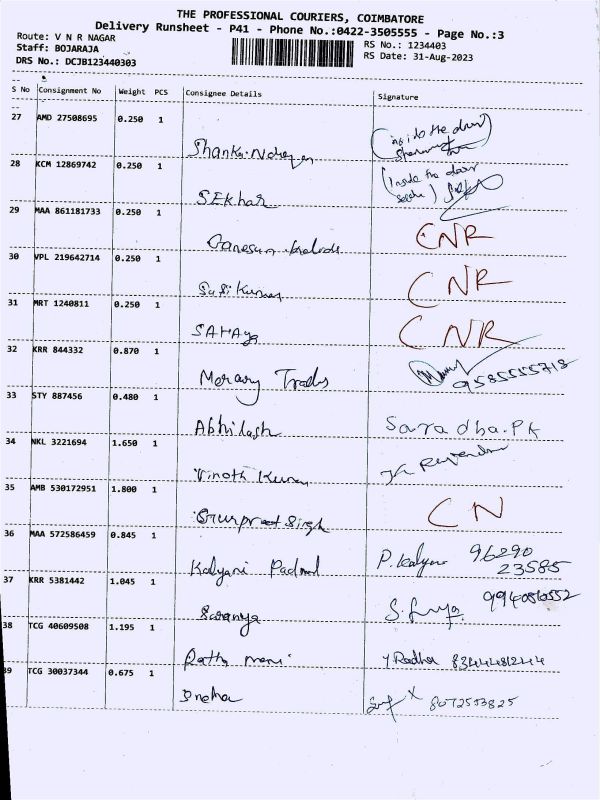 THE PROFESSIONAL COURIERS, COIMBATORE
Delivery Runsheet - P41 - Phone No.:0422-3505555 - Page No.:3
Route: V N R NAGAR
RS No.: 1234403
Staff: BOJARAJA
RS Date: 31-Aug-2023
DRS No.: DCJB123440303
S No Consignment No Weight PCS Consignee Details Signature
27 AMD 27508695 0.250 1
28 KCM 12869742 0.250 1
SEkhar
29 MAA 861181733 0.250 1
Ganesan CNR
30 VPL 219642714 0.250 1
Sasi Kumar CNR
31 MRT 1240811 0.250 1
SAHAya CNR
32 KRR 844332 0.870 1
Mercury Trades 9585555718
33 STY 887456 0.480 1
Abhilash Saradha.PK
34 NKL 3221694 1.650 1
Vinoth Kumar
35 AMB 530172951 1.800 1
Gurpreet Singh CN
36 MAA 572586459 0.845 1
Kalyani Padmal P. Kalyani 96290
23585
37 KRR 5381442 1.045 1
Saranya
38 TCG 40609508 1.195 1
Rathi mani Y Radha
39 TCG 30037344 0.675 1
Sneha 8072553825